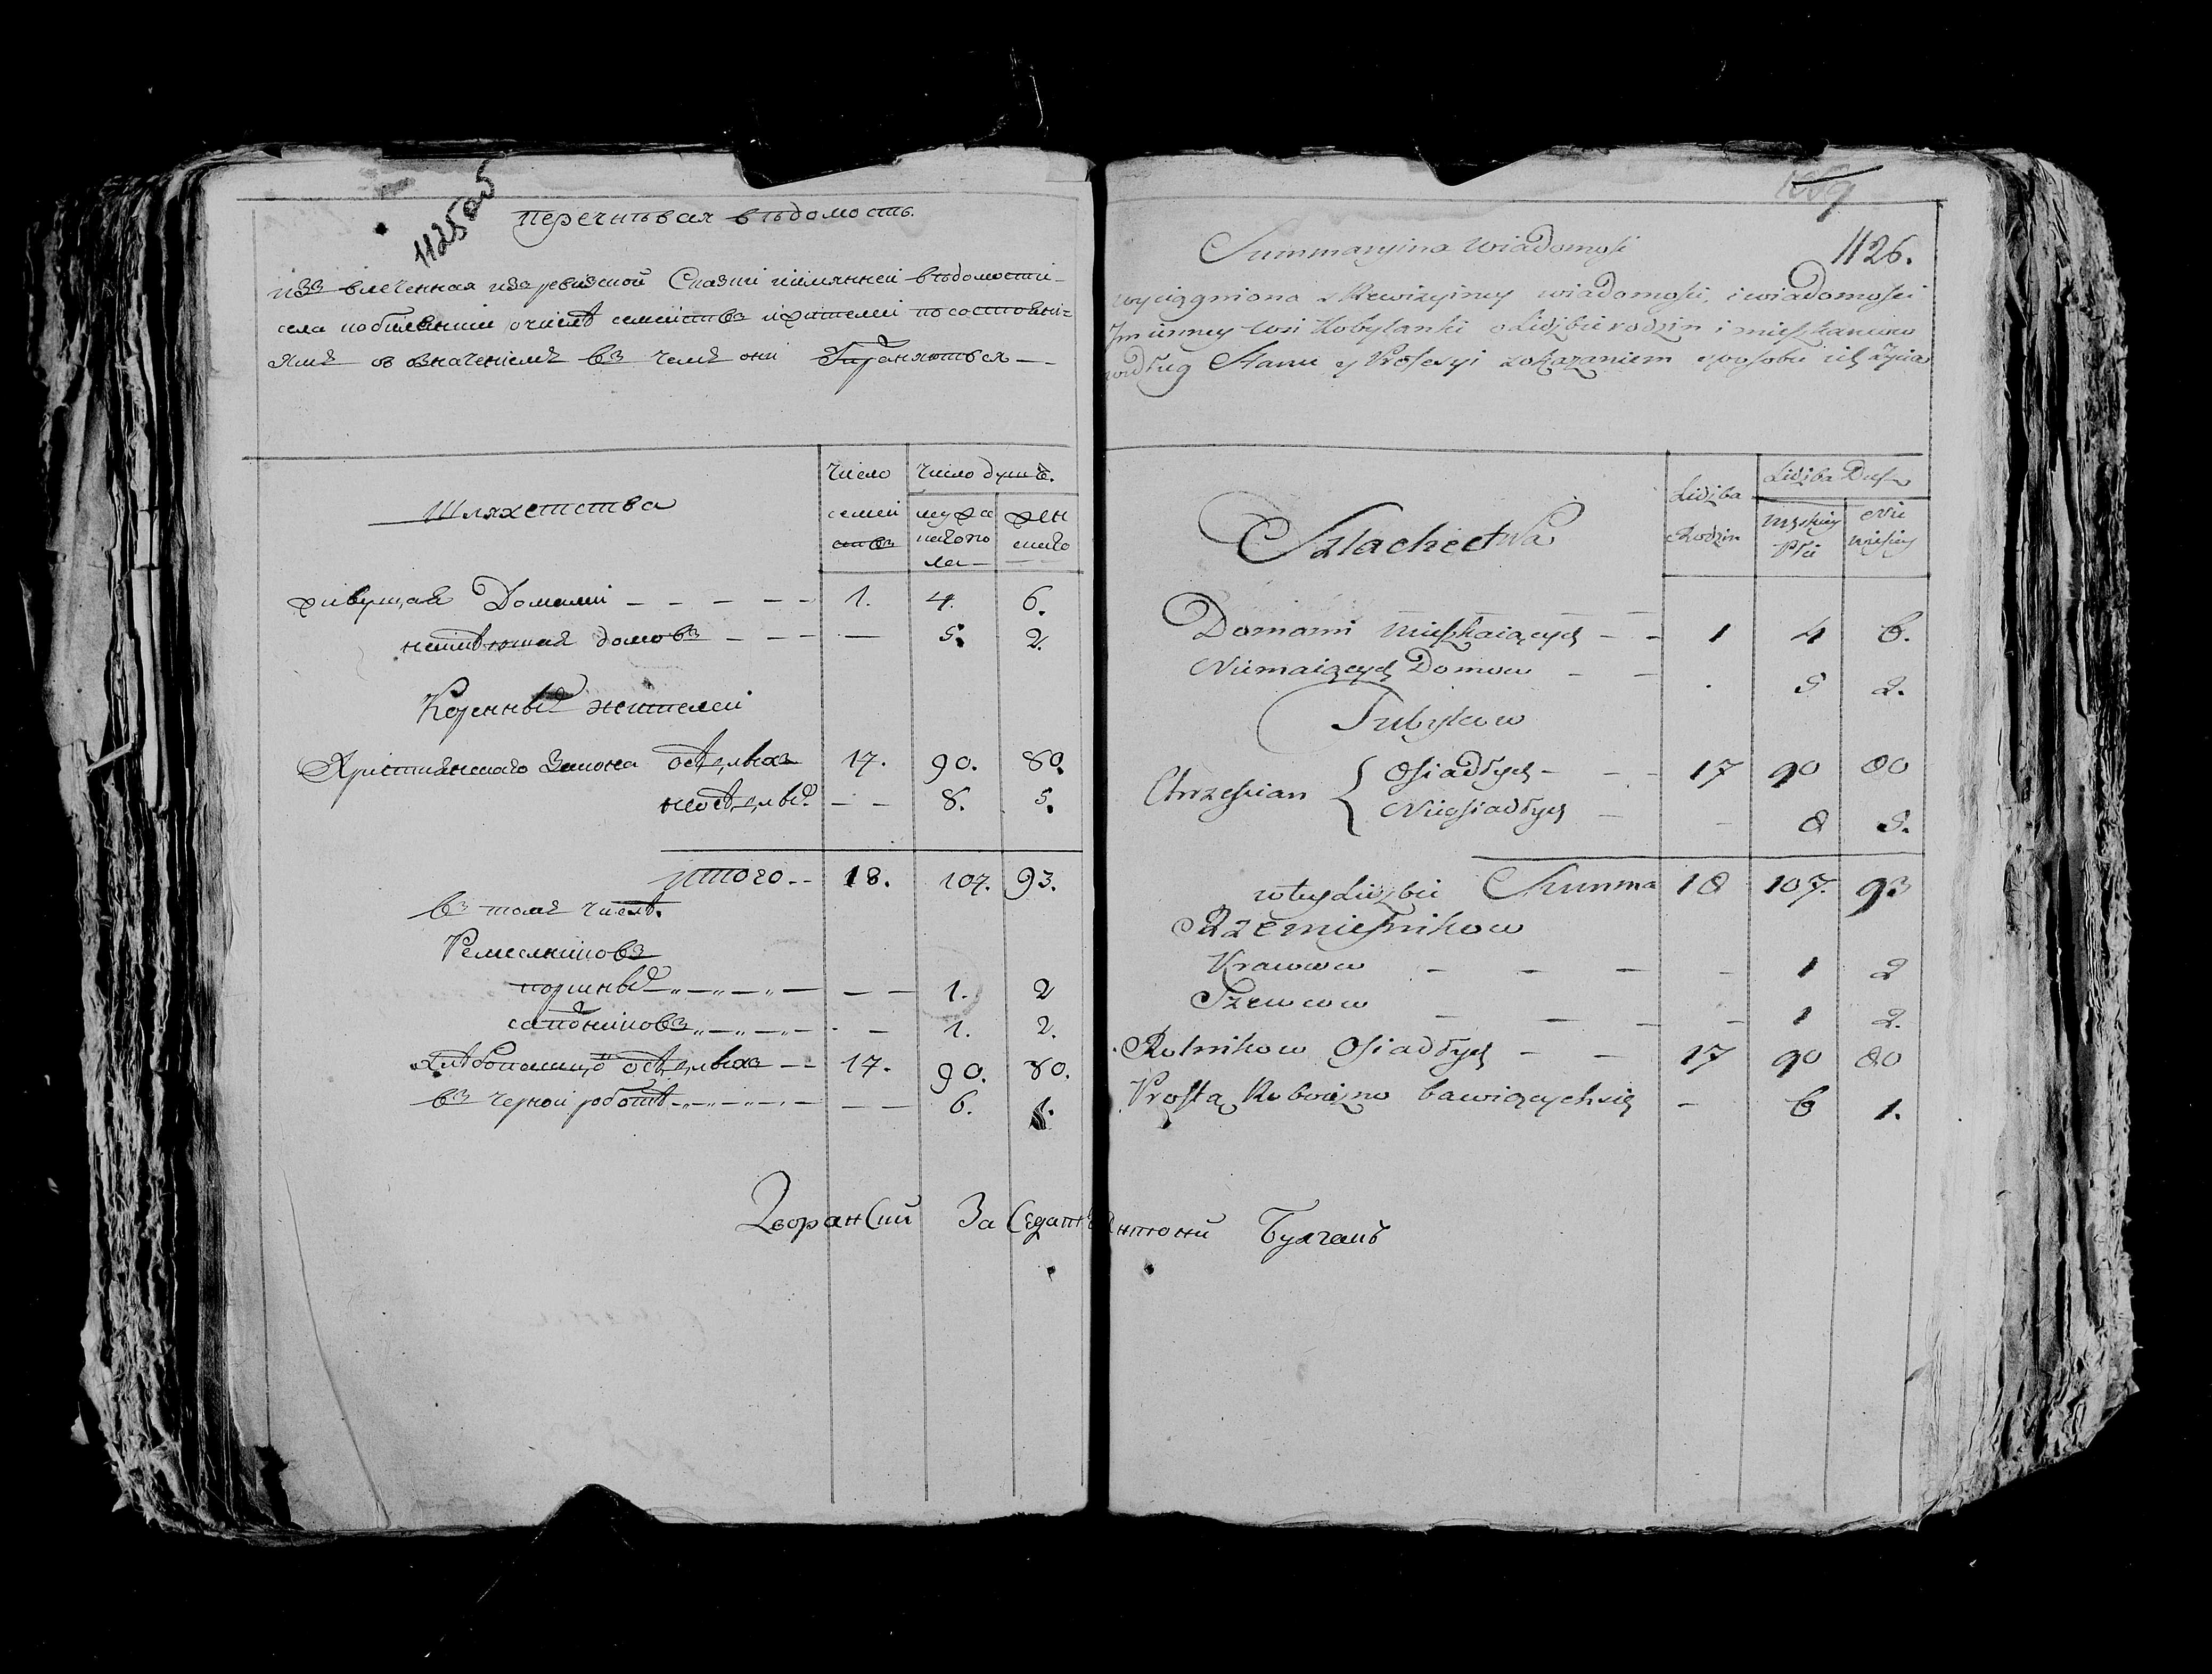 1125 об
Перечневая вѣдомость.
изъ влеченная изъ ревизской Сказки иимянней вѣдомости
села Кобилянки, очислѣ семействъ ижителей посостояні=
ямъ со означеніемъ въ чемъ они Упражняються
Шляхетства
Число семей ствъ
Число душъ.
мужескаго пола
женскаго
живущихъ Домами 1. 4. 6.
неимѣющихъ домовъ — 5. 2.
Коренныхъ жителей
Християнского Закона осѣдлыхъ 17. 90. 80.
неосѣдлыхъ — — 8. 5.
Итого 18. 107. 93.
Въ томъ числѣ.
Ремесниковъ
портныхъ — — 1. 2
сапожниковъ — 1. 2.
хлѣбопашцовъ осѣдлыхъ 17. 90. 80.
въ черной роботѣ — — 6. 1.
Дворанский Заседатель Антоний Булгакъ
1126.
Summaryina Wiadomość
wyciągniona z Rewizyiney wiadomości, i wiadomości
Jmienney wsi Kobylanki o Liczbie rodzin i mieszkancow
podług Stanu y Profesyi z okazaniem sposobu ich życia
Szlachectwa
Liczba Rodzin
Liczba Dusz
Męskiey Płci
Niewieściey
Domami mieszkaiących 1 4 6.
Niemaiących Domow . 5 2.
Tubylcow
Chrześcian { Osiadłych 17 90 80
Nieosiadłych — 8 5.
w tey Liczbie Summa 18 107. 93
Rzemieśnikow
Krawcow — 1 2
Szewcow — 1 2.
Rolnikow Osiadłych 17 90 80
Prostą Robocizną bawiących się — 6 1.